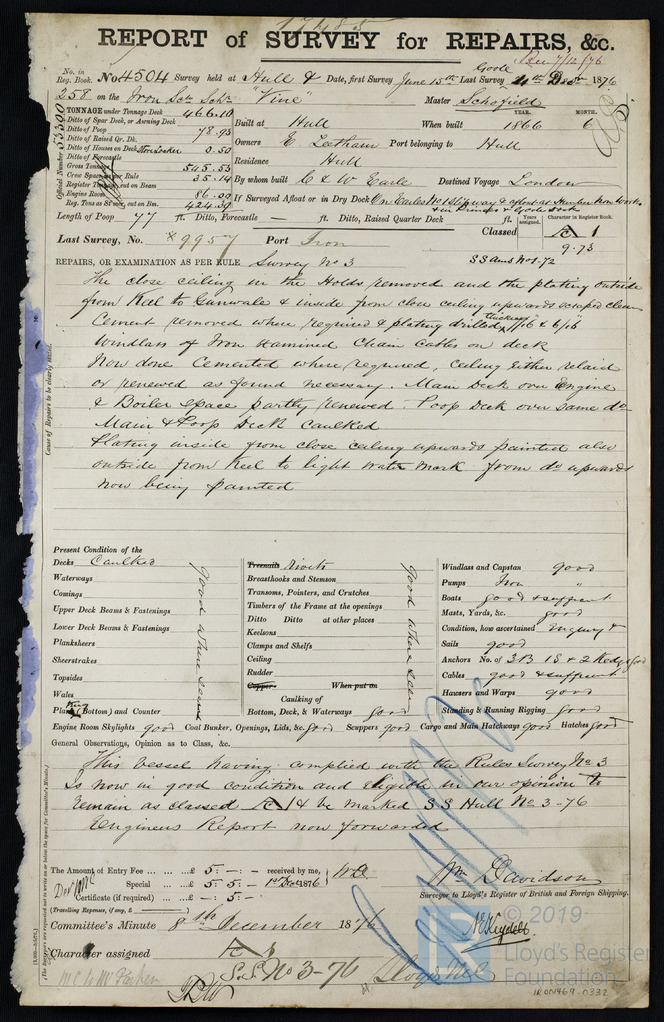 17485
REPORT of SURVEY for REPAIRS, &c.
Rec 7/12/76
No. in Reg. Book. No. 4504 Survey held at Hull & Goole Date, first Survey June 15th Last Survey 4th Decr 1876
258 on the Iron Scr Schr "Vine" Master Schofield
TONNAGE under Tonnage Deck 466.10
Ditto of Spar, or Awning Deck
Ditto of Poop 78.93
Ditto of Raised Qr. Dk.
Ditto of Houses on Deck Store Locker 0.50
Ditto of Forecastle
Gross Tonnage 545.53
Crew Space as per Rule 35.14
Register Tonnage cut on Beam
Engine Room 86.00
Reg. Tons as St. cut on Bm. 424.39
Official Number 53300
Built at Hull When built 1866 YEAR. MONTH. 6
Owners E Leetham Port belonging to Hull
Residence Hull
By whom built C & W Earle Destined Voyage London
If Surveyed Afloat or in Dry Dock On Earles No 1 Slipway & afloat at Humber Iron Works & in Goole Dock
Length of Poop 77 ft. Ditto, Forecastle — ft. Ditto, Raised Quarter Deck — ft.
Years assigned. Character in Register Book.
Last Survey, No. 9957 Port Iron Classed A 1
9.73
REPAIRS, OR EXAMINATION AS PER RULE Survey No 3 SS No 1-72
The close ceiling in the Holds removed and the plating outside
from Keel to Gunwale & inside from close ceiling upwards scraped clean
Cement removed where required & plating drilled thickness 7/16 & 6/16
Windlass of Iron Examined Chain Cables on deck
Now done Cemented where required, ceiling either relaid
or renewed as found necessary. Main Deck over Engine
& Boiler space partly renewed. Poop Deck over same do
Main & Poop Deck Caulked
Plating inside from close ceiling upwards painted also
outside from Keel to light water mark from do upwards
now being painted
Cause of Repairs to be clearly stated.
Present Condition of the
Decks Caulked
Waterways
Comings
Upper Deck Beams & Fastenings
Lower Deck Beams & Fastenings
Planksheers
Sheerstrakes
Topsides
Wales
Plating (Bottom) and Counter
good where seen
Treenails Rivets
Breasthooks and Stemson
Transoms, Pointers, and Crutches
Timbers of the Frame at the openings
Ditto Ditto at other places
Keelsons
Clamps and Shelfs
Ceiling
Rudder
Copper When put on
Caulking of
Bottom, Deck, & Waterways good
good where seen
Windlass and Capstan good
Pumps Iron "
Boats good & sufficient
Masts, Yards, &c. good
Condition, how ascertained Enquiry &
Sails good
Anchors No. of 3 B 1 S & 2 Kedges good
Cables good & sufficient
Hawsers and Warps good
Standing & Running Rigging good
Engine Room Skylights good Coal Bunker, Openings, Lids, &c. good Scuppers good Cargo and Main Hatchways good Hatches good
General Observations, Opinion as to Class, &c.
This vessel having complied with the Rules Survey No 3
Is now in good condition and Eligible in our opinion to
remain as classed A 1 & be marked S S Hull No 3-76
Engineers Report now forwarded
The Amount of Entry Fee ... ... £ 5 : - : - received by me,
Special ... ... £ 5 : 5 : - 1st Dec 1876
Certificate (if required) ... £ - : 5 : -
(Travelling Expenses, if any, £ )
Wm Davidson
Surveyor to Lloyd's Register of British and Foreign Shipping.
Committee's Minute 8th December 1876
Character assigned A 1
S.S. No 3-76
© 2019
Lloyd's Register
Foundation
IRON469-0332